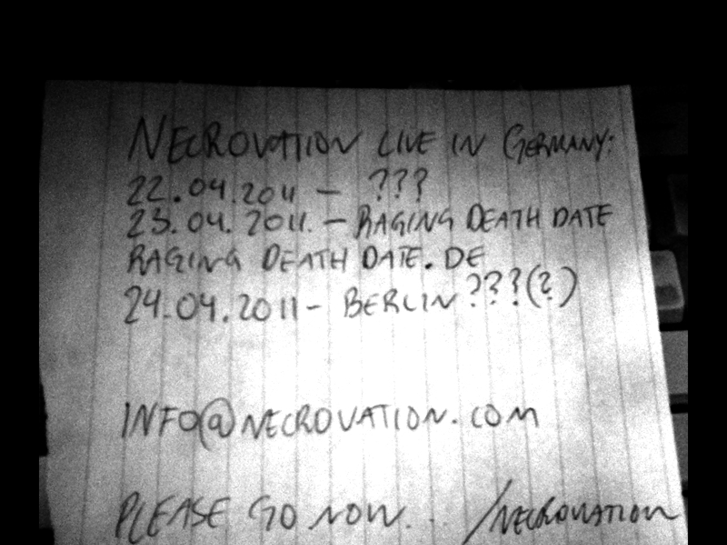 NECROVATION LIVE IN GERMANY:
22.04.2011 – ???
23.04.2011. – RAGING DEATH DATE
RAGING DEATH DATE.DE
24.04.2011 – BERLIN ???(?)
INFO@NECROVATION.COM
PLEASE GO NOW... /NECROVATION